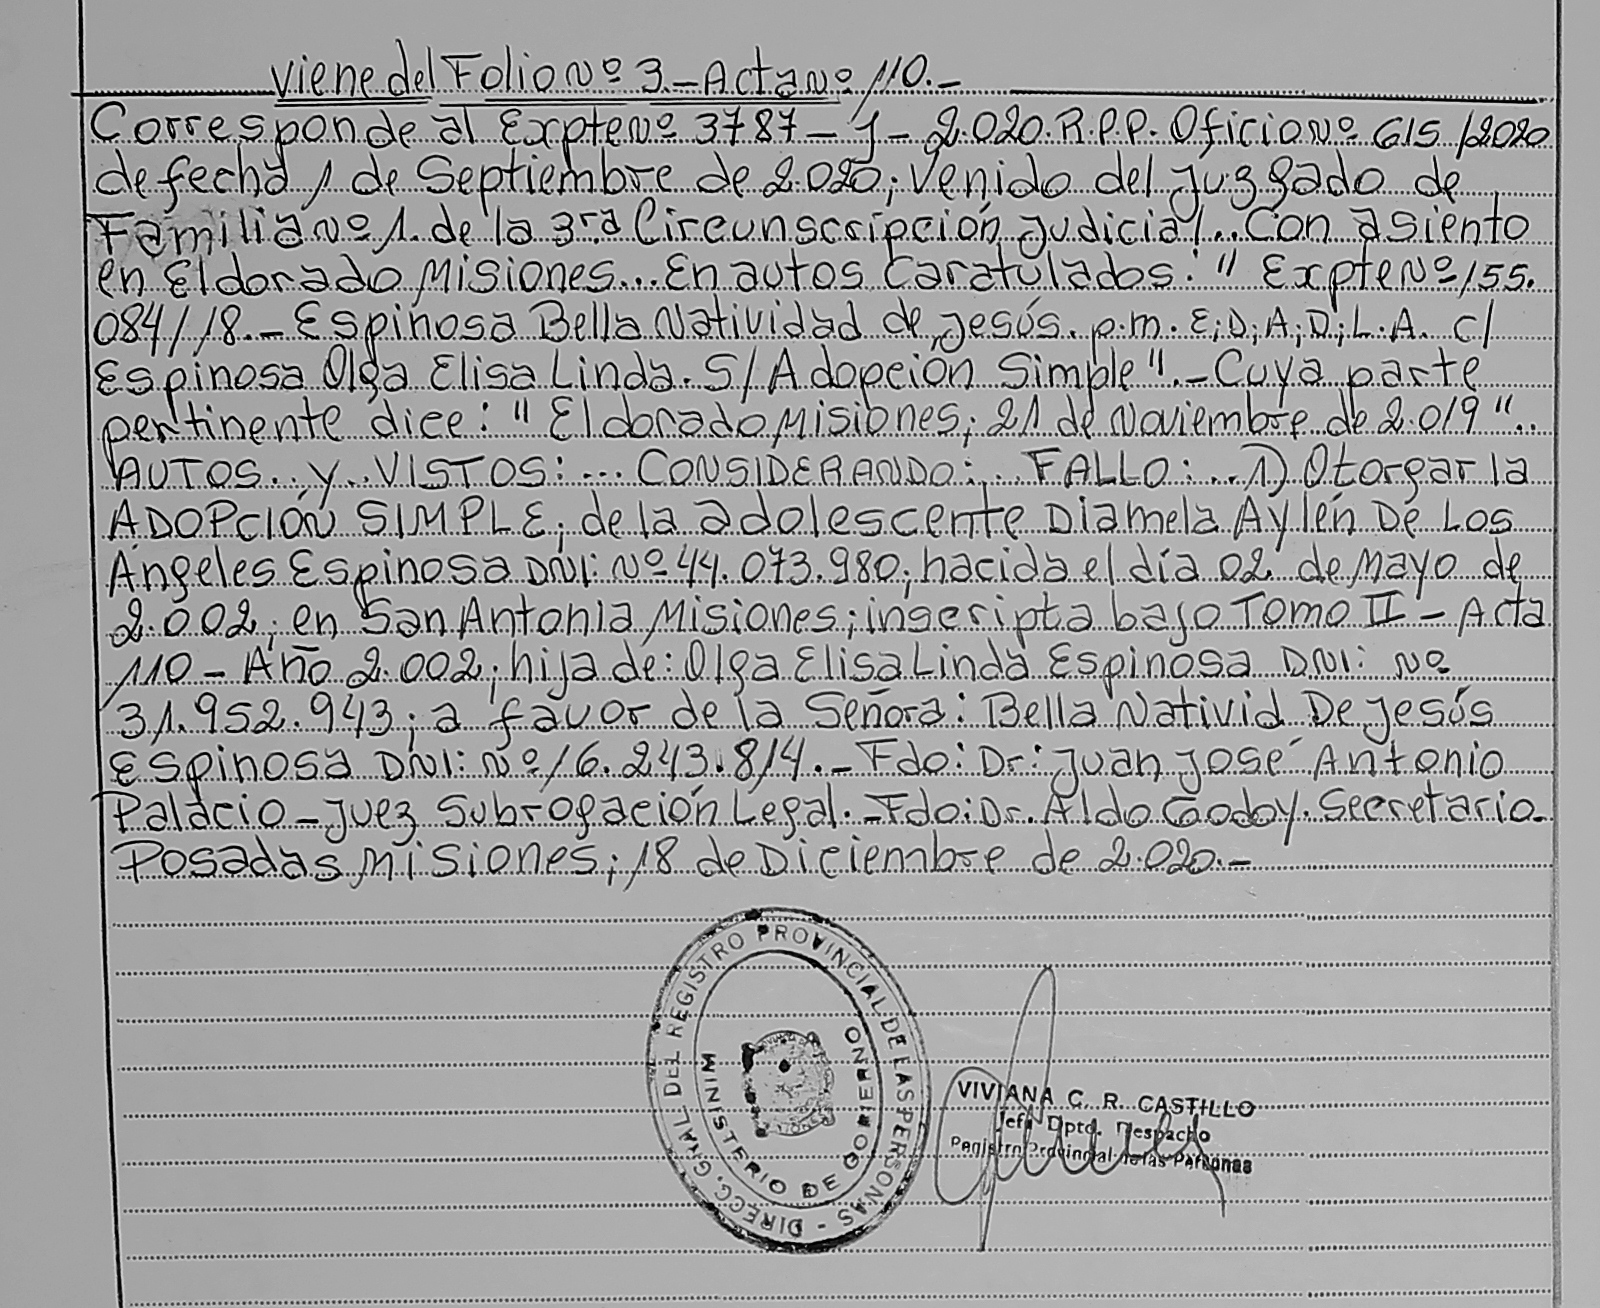 Viene del Folio Nº 3.- Acta Nº 110.-
Corresponde al Expte Nº 3787-J-2.020.R.P.P. Oficio Nº 615/2020
de fecha 1 de Septiembre de 2.020; Venido del Juzgado de
Familia Nº 1. de la 3ra Circunscripción Judicial.. Con asiento
en Eldorado Misiones... En autos Caratulados: " Expte Nº 155.
084/18.- Espinosa Bella Natividad de Jesús. p.m. E; D; A; D; L. A. c/
Espinosa Olga Elisa Linda. S/ Adopción Simple".- Cuya parte
pertinente dice: " Eldorado Misiones; 21 de Noviembre de 2.019"..
AUTOS.. y.. VISTOS: ... CONSIDERANDO: ... FALLO: ... 1) Otorgar la
ADOPCIÓN SIMPLE; de la adolescente Diamela Aylén De Los
Ángeles Espinosa DNI: Nº 44.073.980; nacida el día 02 de Mayo de
2.002; en San Antonia Misiones; inscripta bajo Tomo II - Acta
110 - Año 2.002; hija de: Olga Elisa Linda Espinosa DNI: Nº
31.952.943; a favor de la Señora: Bella Nativid De Jesús
Espinosa DNI: Nº 16.243.814.- Fdo: Dr: Juan José Antonio
Palacio - Juez Subrogación Legal.- Fdo: Dr. Aldo Godoy. Secretario.
Posadas Misiones; 18 de Diciembre de 2.020.-
DIRECC. GRAL DEL REGISTRO PROVINCIAL DE LAS PERSONAS -
MINISTERIO DE GOBIERNO
VIVIANA C. R. CASTILLO
Jefa Dpto. Despacho
Registro Provincial de las Personas